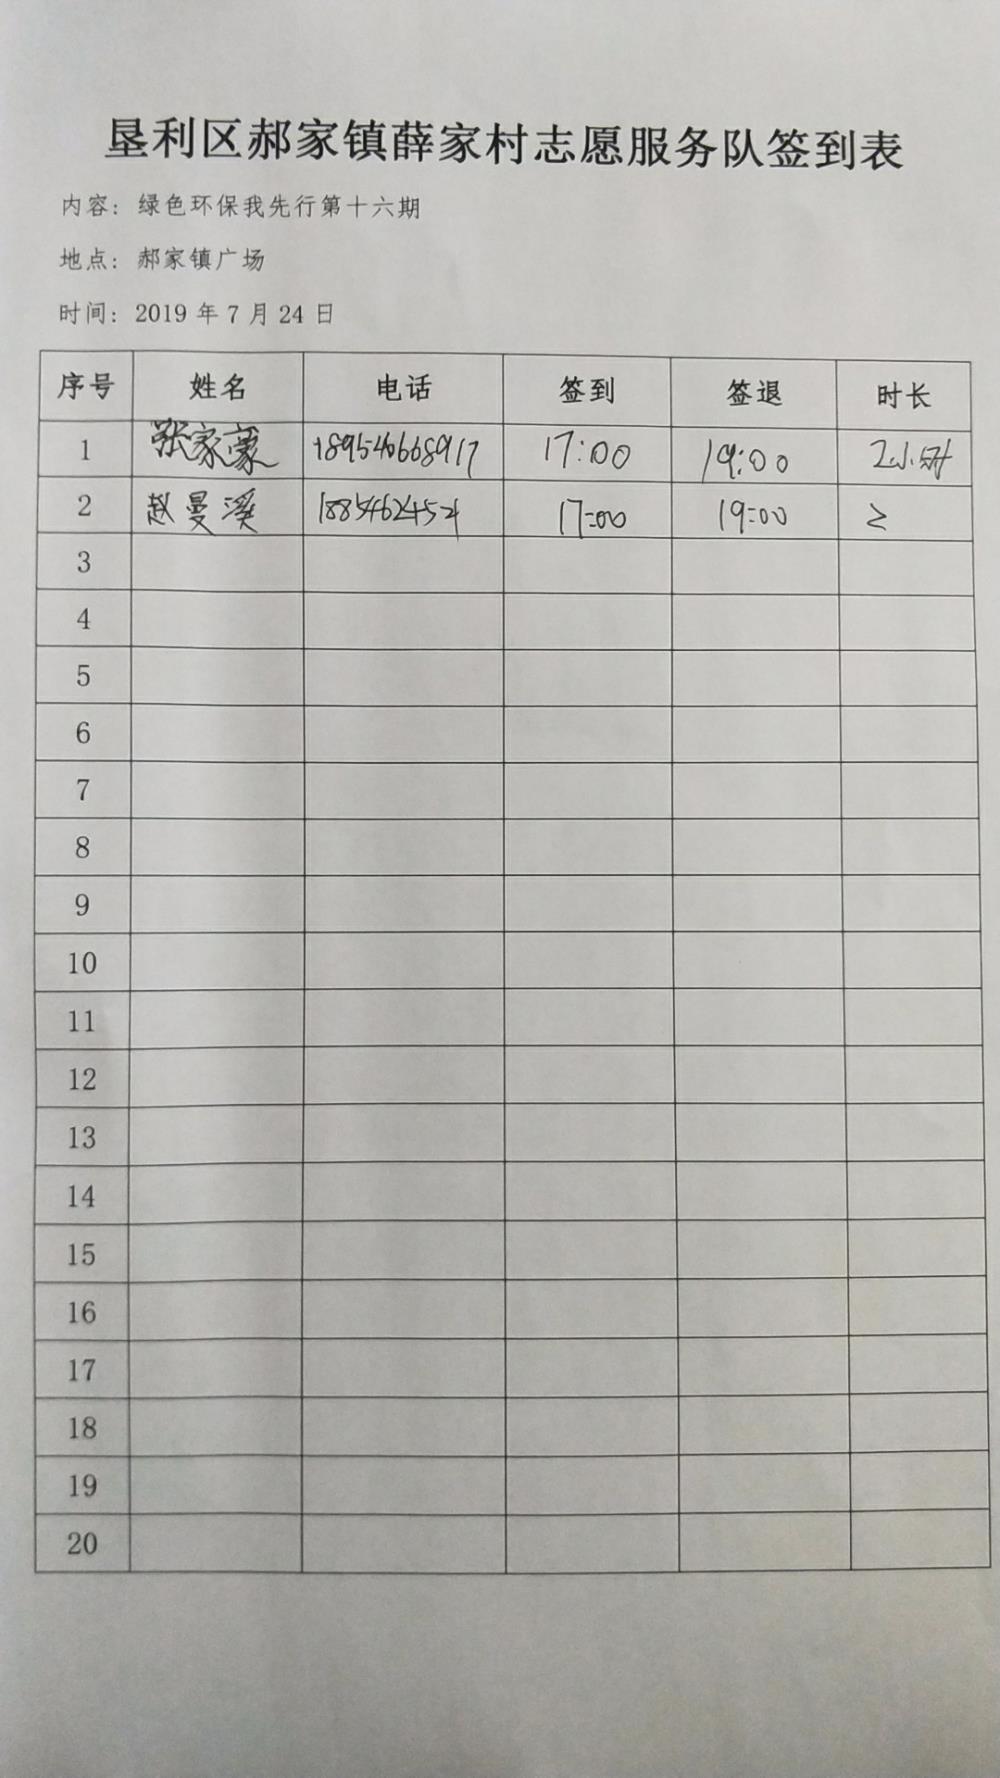 垦利区郝家镇薛家村志愿服务队签到表
内容：绿色环保我先行第十六期
地点：郝家镇广场
时间：2019 年 7 月 24 日
序号 姓名 电话 签到 签退 时长
1 张家豪 189546668917 17:00 19:00 2小时
2 赵曼溪 17:00 19:00 2
3
4
5
6
7
8
9
10
11
12
13
14
15
16
17
18
19
20